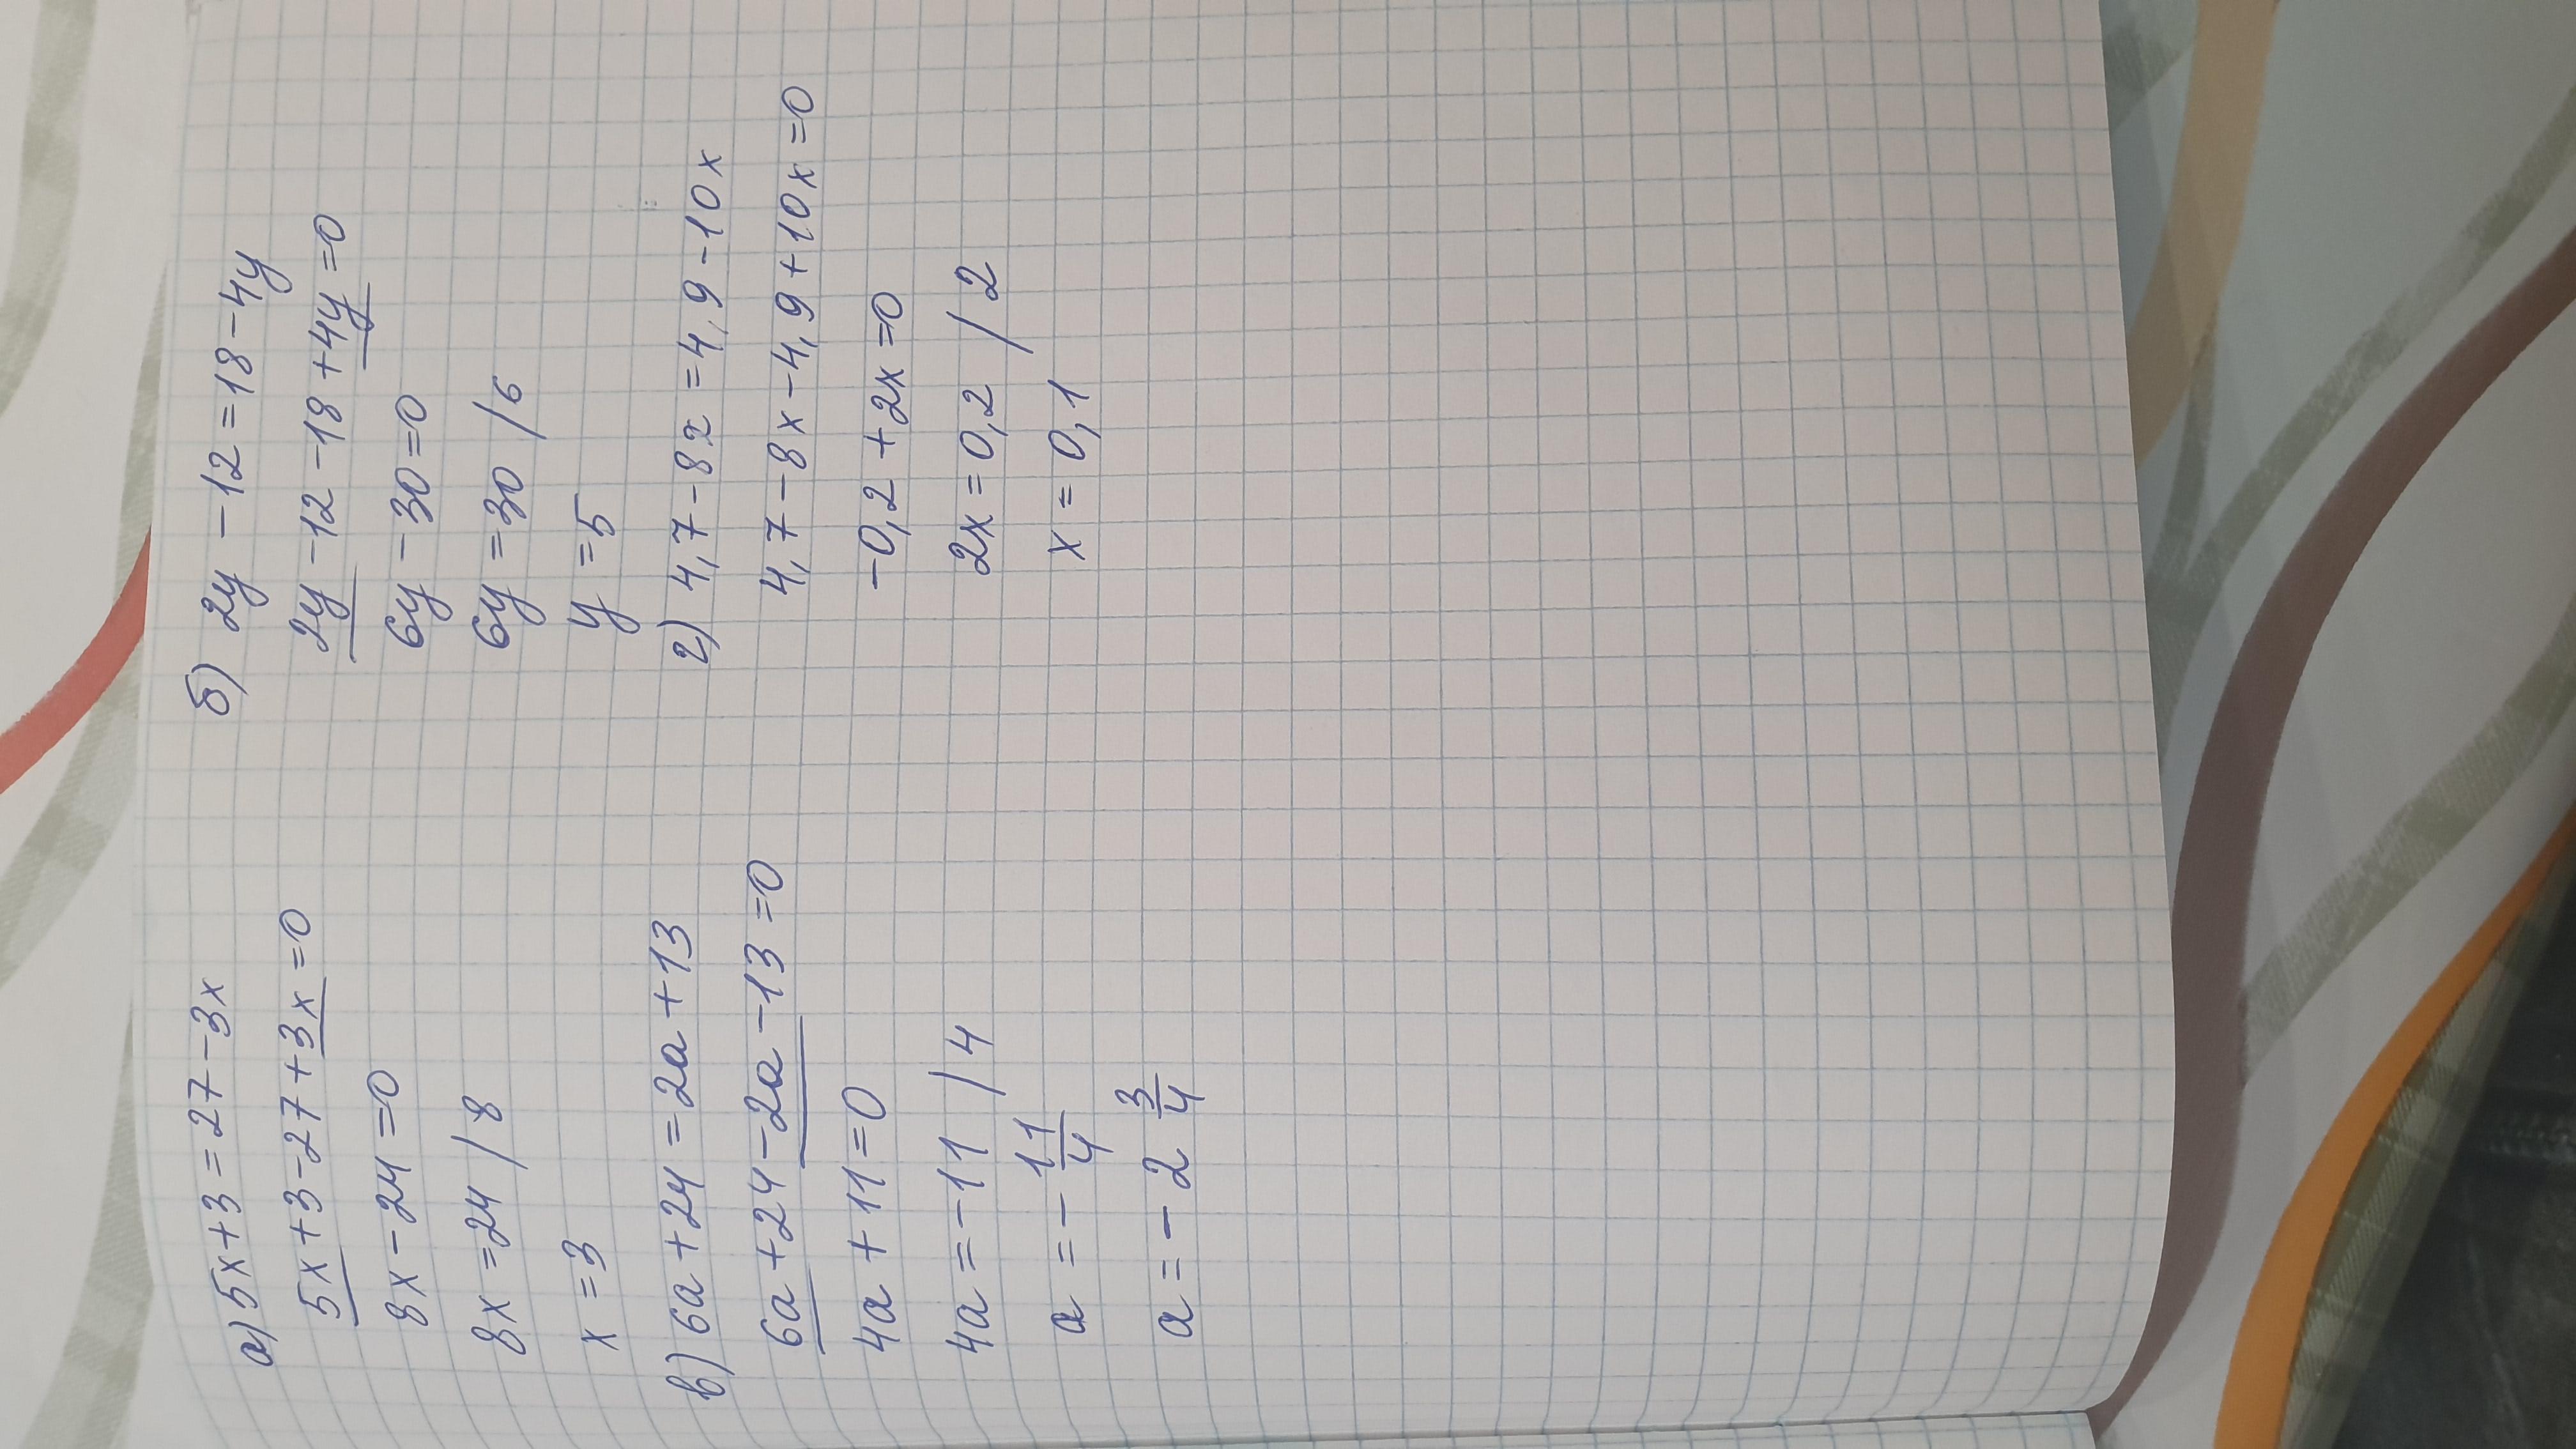 а) 5x+3=27-3x
5x+3-27+3x=0
8x-24=0
8x=24 /8
x=3
б) 2y-12=18-4y
2y-12-18+4y=0
6y-30=0
6y=30 /6
y=5
в) 6a+24=2a+13
6a+24-2a-13=0
4a+11=0
4a=-11 /4
a=-11/4
a=-2 3/4
г) 4,7-8x=4,9-10x
4,7-8x-4,9+10x=0
-0,2+2x=0
2x=0,2 /2
x=0,1